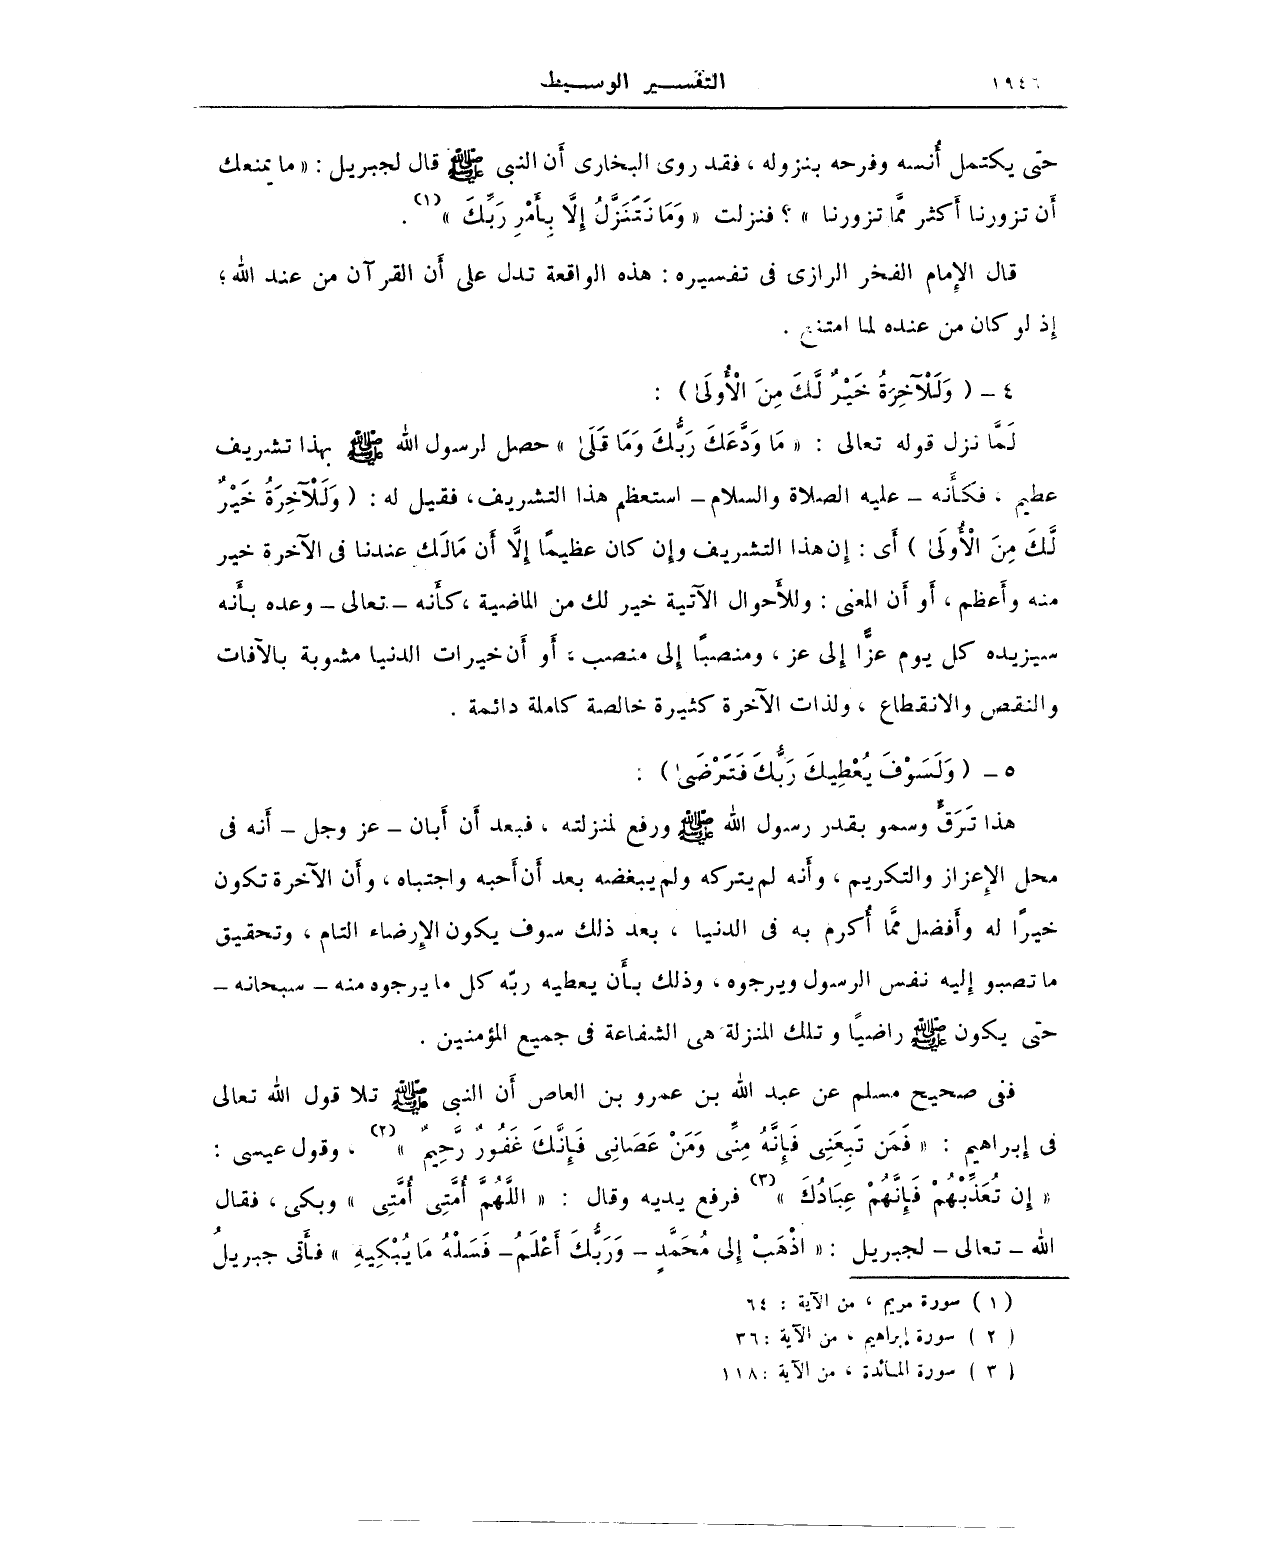 ١٩٤٦
التفسير الوسيط
حتى يكتمل أُنسه وفرحه بنزوله ، فقد روى البخارى أَن النبى ﷺ قال لجبريل : « ما يمنعك
أَن تزورنا أَكثر ممَّا تزورنا » ؟ فنزلت « وَمَا نَتَنَزَّلُ إِلَّا بِأَمْرِ رَبِّكَ »(١) .
قال الإِمام الفخر الرازى فى تفسيره : هذه الواقعة تدل على أَن القرآن من عند الله ؛
إِذ لو كان من عنده لما امتنع .
٤ ــ ( وَلَلْآخِرَةُ خَيْرٌ لَّكَ مِنَ الْأُولَىٰ ) :
لَمَّا نزل قوله تعالى : « مَا وَدَّعَكَ رَبُّكَ وَمَا قَلَىٰ » حصل لرسول الله ﷺ بهذا تشريف
عظيم ، فكأَنه ــ عليه الصلاة والسلام ــ استعظم هذا التشريف ، فقيل له : ( وَلَلْآخِرَةُ خَيْرٌ
لَّكَ مِنَ الْأُولَىٰ ) أَى : إِن هذا التشريف وإِن كان عظيمًا إِلَّا أَن مَالَك عندنا فى الآخرة خير
منه وأَعظم ، أَو أَن المعنى : وللأَحوال الآتية خير لك من الماضية ، كأَنه ــ تعالى ــ وعده بأَنه
سيزيده كل يوم عزًّا إِلى عز ، ومنصبًا إِلى منصب ، أَو أَن خيرات الدنيا مشوبة بالآفات
والنقص والانقطاع ، ولذات الآخرة كثيرة خالصة كاملة دائمة .
٥ ــ ( وَلَسَوْفَ يُعْطِيكَ رَبُّكَ فَتَرْضَىٰ ) :
هذا تَرَقٍّ وسمو بقدر رسول الله ﷺ ورفع لمنزلته ، فبعد أَن أَبان ــ عز وجل ــ أَنه فى
محل الإِعزاز والتكريم ، وأَنه لم يتركه ولم يبغضه بعد أَن أَحبه واجتباه ، وأَن الآخرة تكون
خيرًا له وأَفضل ممَّا أُكرم به فى الدنيا ، بعد ذلك سوف يكون الإِرضاء التام ، وتحقيق
ما تصبو إِليه نفس الرسول ويرجوه ، وذلك بأَن يعطيه ربّه كل ما يرجوه منه ــ سبحانه ــ
حتى يكون ﷺ راضيًا و تلك المنزلة هى الشفاعة فى جميع المؤمنين .
ففى صحيح مسلم عن عبد الله بن عمرو بن العاص أَن النبى ﷺ تلا قول الله تعالى
فى إِبراهيم : « فَمَن تَبِعَنِى فَإِنَّهُ مِنِّى وَمَنْ عَصَانِى فَإِنَّكَ غَفُورٌ رَّحِيمٌ »(٢) ، وقول عيسى :
« إِن تُعَذِّبْهُمْ فَإِنَّهُمْ عِبَادُكَ »(٣) فرفع يديه وقال : « اللَّهُمَّ أُمَّتِى أُمَّتِى » وبكى ، فقال
الله ــ تعالى ــ لجبريل : « اذْهَبْ إِلى مُحَمَّدٍ ــ وَرَبُّكَ أَعْلَمُ ــ فَسَلْهُ مَا يُبْكِيهِ » فأَتى جبريلُ
( ١ ) سورة مريم ، من الآية : ٦٤
( ٢ ) سورة إبراهيم ، من الآية : ٣٦
( ٣ ) سورة المائدة ، من الآية : ١١٨